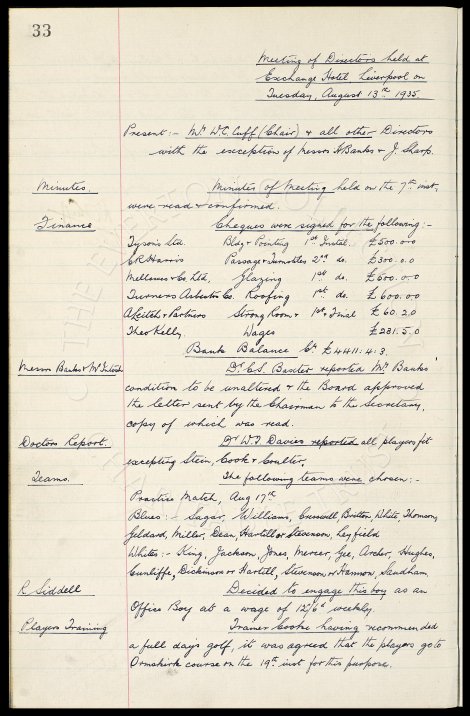 33
Meeting of Directors held at
Exchange Hotel, Liverpool on
Tuesday, August 13th 1935
Present:- Mr W.C. Cuff (Chair) & all other Directors
with the exception of Messrs H Banks & J. Sharp.
Minutes. Minutes of Meeting held on the 7th inst.
were read & confirmed.
Finance Cheques were signed for the following:-
Tysons Ltd. Bldg & Painting 1st Instal. £500.0.0
C R Harris Passage & Turnstiles 2nd do. £300.0.0
Mellowes & Co. Ltd, Glazing 1st do. £600.0.0
Turners Asbestos Co. Roofing 1st do. £600.0.0
A Leitch & Partners Strong Room & 1st & Final £60.2.0
Theo Kelly. Wages £281.5.0
Bank Balance Cr. £4411.4.3.
Messrs Banks & McIntosh Dr C.S. Baxter reported Mr Banks'
condition to be unaltered & the Board approved
the letter sent by the Chairman to the Secretary,
copy of which was read.
Doctors Report. Dr W.J Davies reported all players fit
excepting Stein, Cook & Coulter.
Teams. The following teams were chosen:-
Practice Match, Aug 17th
Blues:- Sagar, Williams, Cresswell, Britton, White, Thomson,
Geldard, Miller, Dean, Hartill or Stevenson, Leyfield
Whites:- King, Jackson, Jones, Mercer, Gee, Archer, Hughes,
Cunliffe, Dickinson or Hartill, Stevenson or Hannon, Sandham.
R Siddell Decided to engage this boy as an
Office Boy at a wage of 12/6d weekly.
Players Training Trainer Cooke having recommended
a full days golf, it was agreed that the players go to
Ormskirk course on the 19th inst for this purpose.